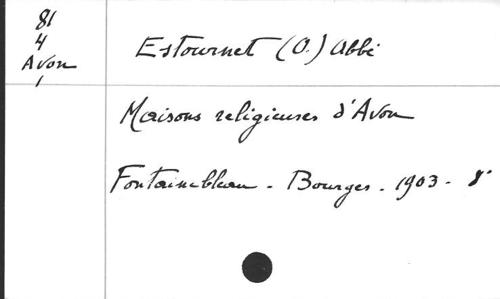 81
4
Avon
1
Estournet (O.) Abbé
Maisons religieuses d'Avon
Fontainebleau - Bourges - 1903 - 8°